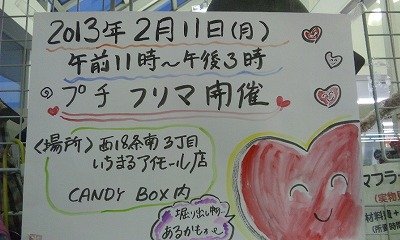 2013年2月11日(月)
午前11時～午後3時
プチ フリマ開催
〈場所〉西18条南3丁目
いちまるアイモール店
CANDY BOX内
堀り出し物
あるかもぉ
マフラー
材料糧+